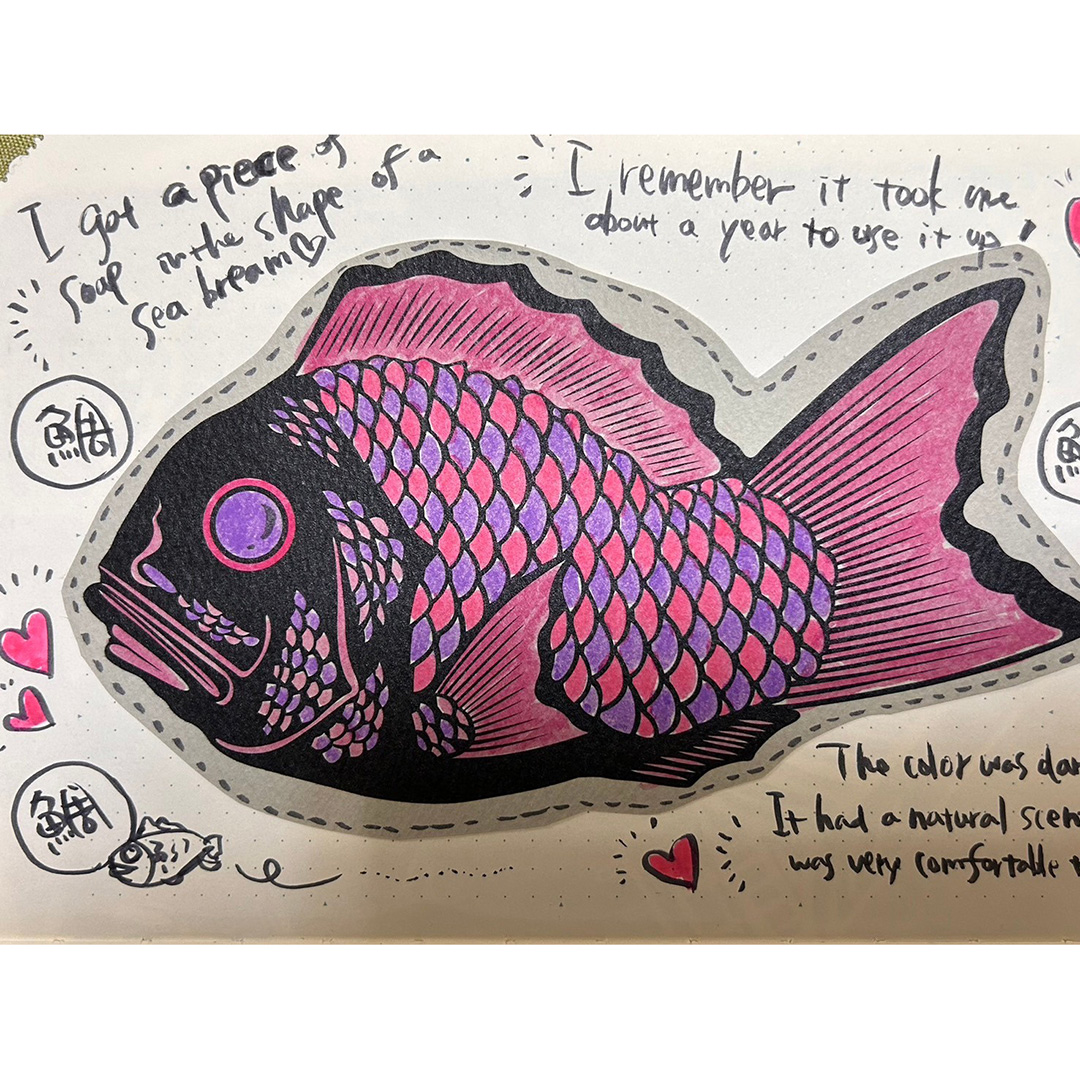 I got a piece of
soap in the shape of a
sea bream
I remember it took me
about a year to use it up!
鯛
鯛
The color was dar
It had a natural scen
was very comfortable